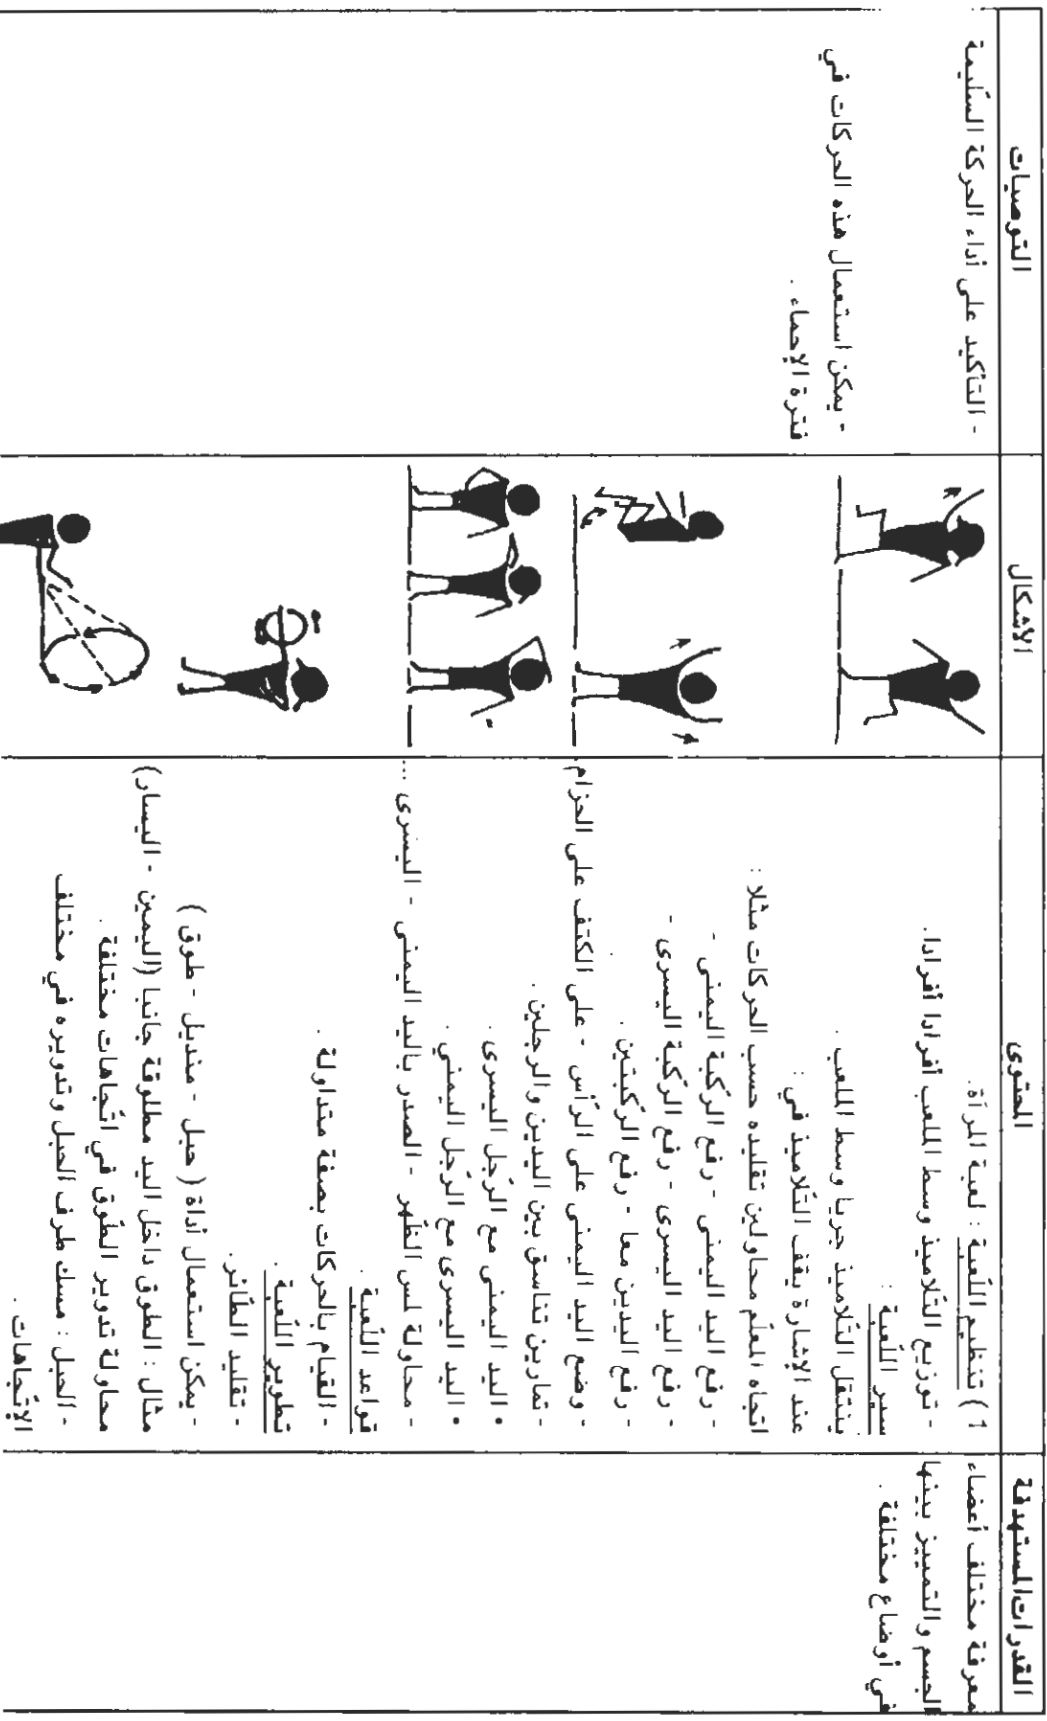 القدرات المستهدفة
معرفة مختلف أعضاء
الجسم والتمييز بينها
في أوضاع مختلفة .
المحتوى
1) تنظيم اللّعبة : لعبة المرآة.
- توزيع التّلاميذ وسط الملعب أفرادا أفرادا.
سير اللّعبة :
ينتقل التّلاميذ جريا وسط الملعب .
عند الإشارة يقف التّلاميذ في :
اتجاه المعلّم محاولين تقليده حسب الحركات مثلا :
- رفع اليد اليمنى - رفع الرّكبة اليمنى -
- رفع اليد اليسرى - رفع الرّكبة اليسرى -
- رفع اليدين معا - رفع الرّكبتين .
- وضع اليد اليمنى على الرّأس - على الكتف على الحزام
- تمارين تناسق بين اليدين والرجلين .
• اليد اليمنى مع الرّجل اليسرى .
• اليد اليسرى مع الرّجل اليمني .
- محاولة لمس الظّهر - الصدر باليد اليمنى - اليسرى ...
قواعد اللّعبة .
- القيام بالحركات بصفة متداولة .
تطوير اللّعبة .
- تقليد الطّائر .
- يمكن استعمال أداة ( حبل - منديل - طوق )
مثال : الطوق داخل اليد مطلوقة جانبا (اليمين - اليسار)
محاولة تدوير الطّوق في اتّجاهات مختلفة .
- الحبل : مسك طرف الحبل وتدويره في مختلف
الإتّجاهات .
الاشكال
التوصيات
- التأكيد على أداء الحركة السّليمة
- يمكن استعمال هذه الحركات في
فترة الإحماء .